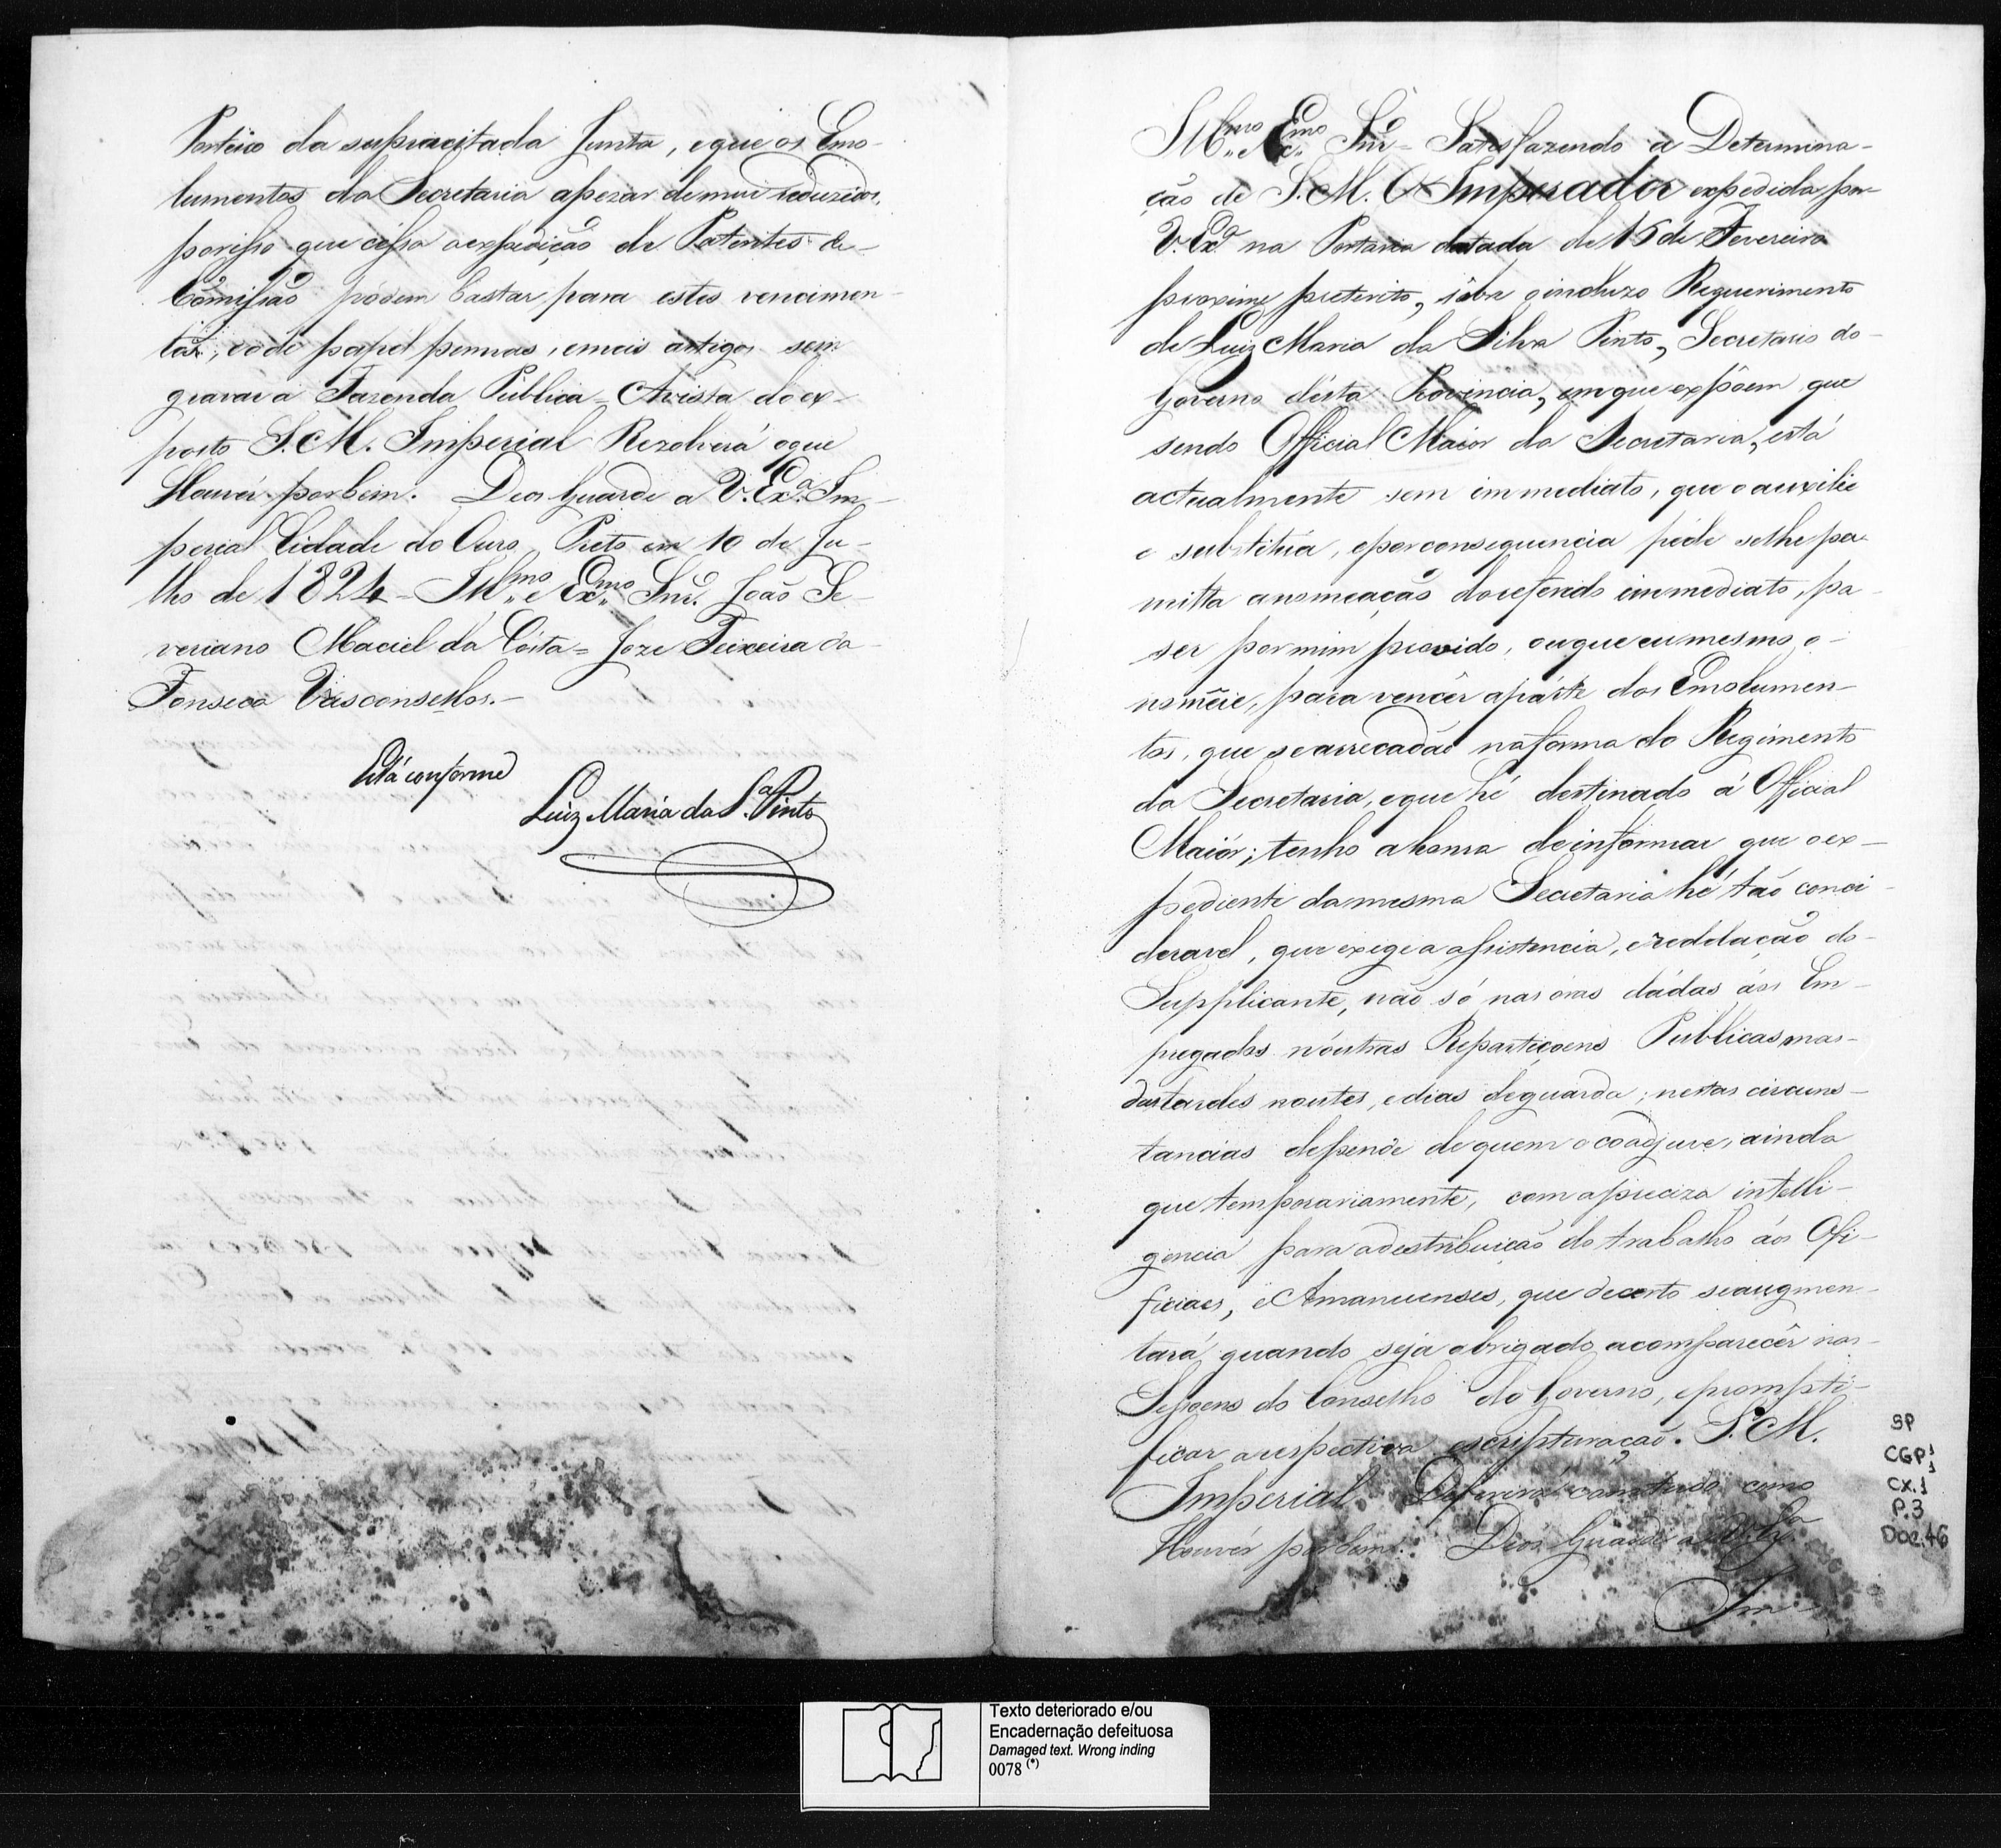 Porteiro da supracitada Junta, e que os Emo-
lumentos da Secretaria apezar de mui reduzidos,
por isso que cessa a expedição de Patentes de-
Comissão pódem bastar para estes vencimen-
tos, e o de papel pennas, e mais artigos sem
gravar a Fazenda Publica = A vista do ex-
posto S. M. Imperial Rezolverá o que
Houvér por bem. Deos Guarde a V. Exª. Im-
perial Cidade do Ouro Preto em 10 de Ju-
lho de 1824 = Illmo. e Exmo. Snr. João Se-
veriano Maciel da Costa = Joze Teixeira da-
Fonseca Vasconselhos. -
Está conforme
Luiz Maria da Sª Pinto
Illmo. e Exmo. Snr = Satisfazendo a Determina-
ção de S. M. O Imperador expedida por
V. Exª na Portaria datada de 16 de Fevereiro
proximo preterito, sobre o incluzo Requerimento
de Luiz Maria da Silva Pinto, Secretario do-
Governo désta Provincia, em que expõem que
sendo Official Maior da Secretaria, está
actualmente sem immediato, que o auxilie
e substitúa, e por consequencia péde se lhe per
mitta a nomeação do referido immediato, pa
ser por mim provido, ou que eu mesmo o-
noméie, para vencêr a párte dos Emolumen-
tos, que se arrecadão na forma do Regimento
da Secretaria, e que hé destinado á Official
Maiór; tenho a honra de informar que o ex-
pediente da mesma Secretaria hé tão conci-
deravel, que exige a assistencia, e reddação do-
Supplicante, não só nas óras dádas áos Em-
pregados n'óutras Repartiçoens Publicas mas-
das tardes noutes, e dias de guarda; nestas circuns-
tancias depende de quem o coadjuve, ainda
que temporariamente, com a preciza intelli-
gencia para a destribuição do trabalho áos Ofi-
ficiaes, e Amanuenses, que de certo se augmen-
tará quando seja obrigado a comparecêr nas-
Sessoens do Conselho do Governo, e prompti-
ficar a respectiva escripturação. S. M.
Imperial Deferirá com tudo como
Houvér por bem. Deos Guarde a V. Exª
Im-
SP
CGP¹ 1
CX.1
P.3
Doc.46
Texto deteriorado e/ou
Encadernação defeituosa
Damaged text. Wrong inding
0078 (*)